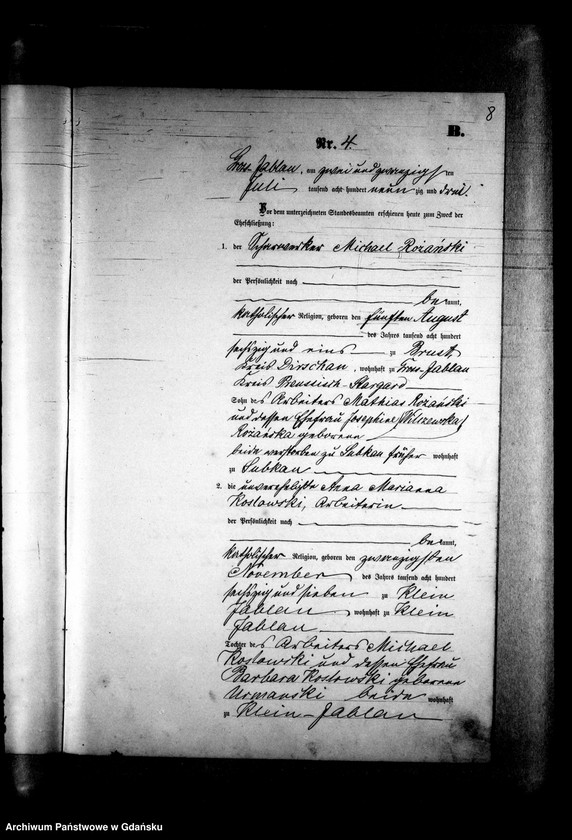 8
B.
Nr. 4.
Gross Jablau, am zwei und zwanzigsten
Juli tausend acht hundert neun zig und drei.
Vor dem unterzeichneten Standesbeamten erschienen heute zum Zweck der
Eheschließung:
1. der Scharwerker Michael Rozański
der Persönlichkeit nach
bekannt,
katholischer Religion, geboren den fünften August
des Jahrs tausend acht hundert
sechszig und eins zu Brust,
Kreis Dirschau, wohnhaft zu Gross-Jablau
Kreis Preussisch-Stargard
Sohn des Arbeiters Mathias Rozański
und dessen Ehefrau Josephine
Rozańska geborene
beide verstorben zu Subkau früher wohnhaft
zu Subkau
2. die unverehelichte Anna Marianna
Koslowski, Arbeiterin
der Persönlichkeit nach
bekannt,
katholischer Religion, geboren den zwanzigsten
November des Jahrs tausend acht hundert
sechszig und sieben zu Klein
Jablau wohnhaft zu Klein
Jablau
Tochter des Arbeiters Michael
Koslowski und dessen Ehefrau
Barbara Koslowski geborene
Urmanski beide wohnhaft
zu Klein-Jablau
Archiwum Państwowe w Gdańsku